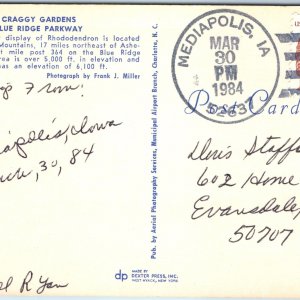 CRAGGY GARDENS
BLUE RIDGE PARKWAY
display of Rhododendron is located
Mountains, 17 miles northeast of Ashe-
mile post 364 on the Blue Ridge
area is over 5,000 ft. in elevation and
has an elevation of 6,100 ft.
Photograph by Frank J. Miller
MEDIAPOLIS, IA
MAR
30
PM
1984
52637
Post Card
From:
Iowa
30, 84
602 Home
Evansdale,
50707
Pub. by Aerial Photography Services, Municipal Airport Branch, Charlotte, N. C.
dp
MADE BY
DEXTER PRESS, INC.
WEST NYACK, NEW YORK